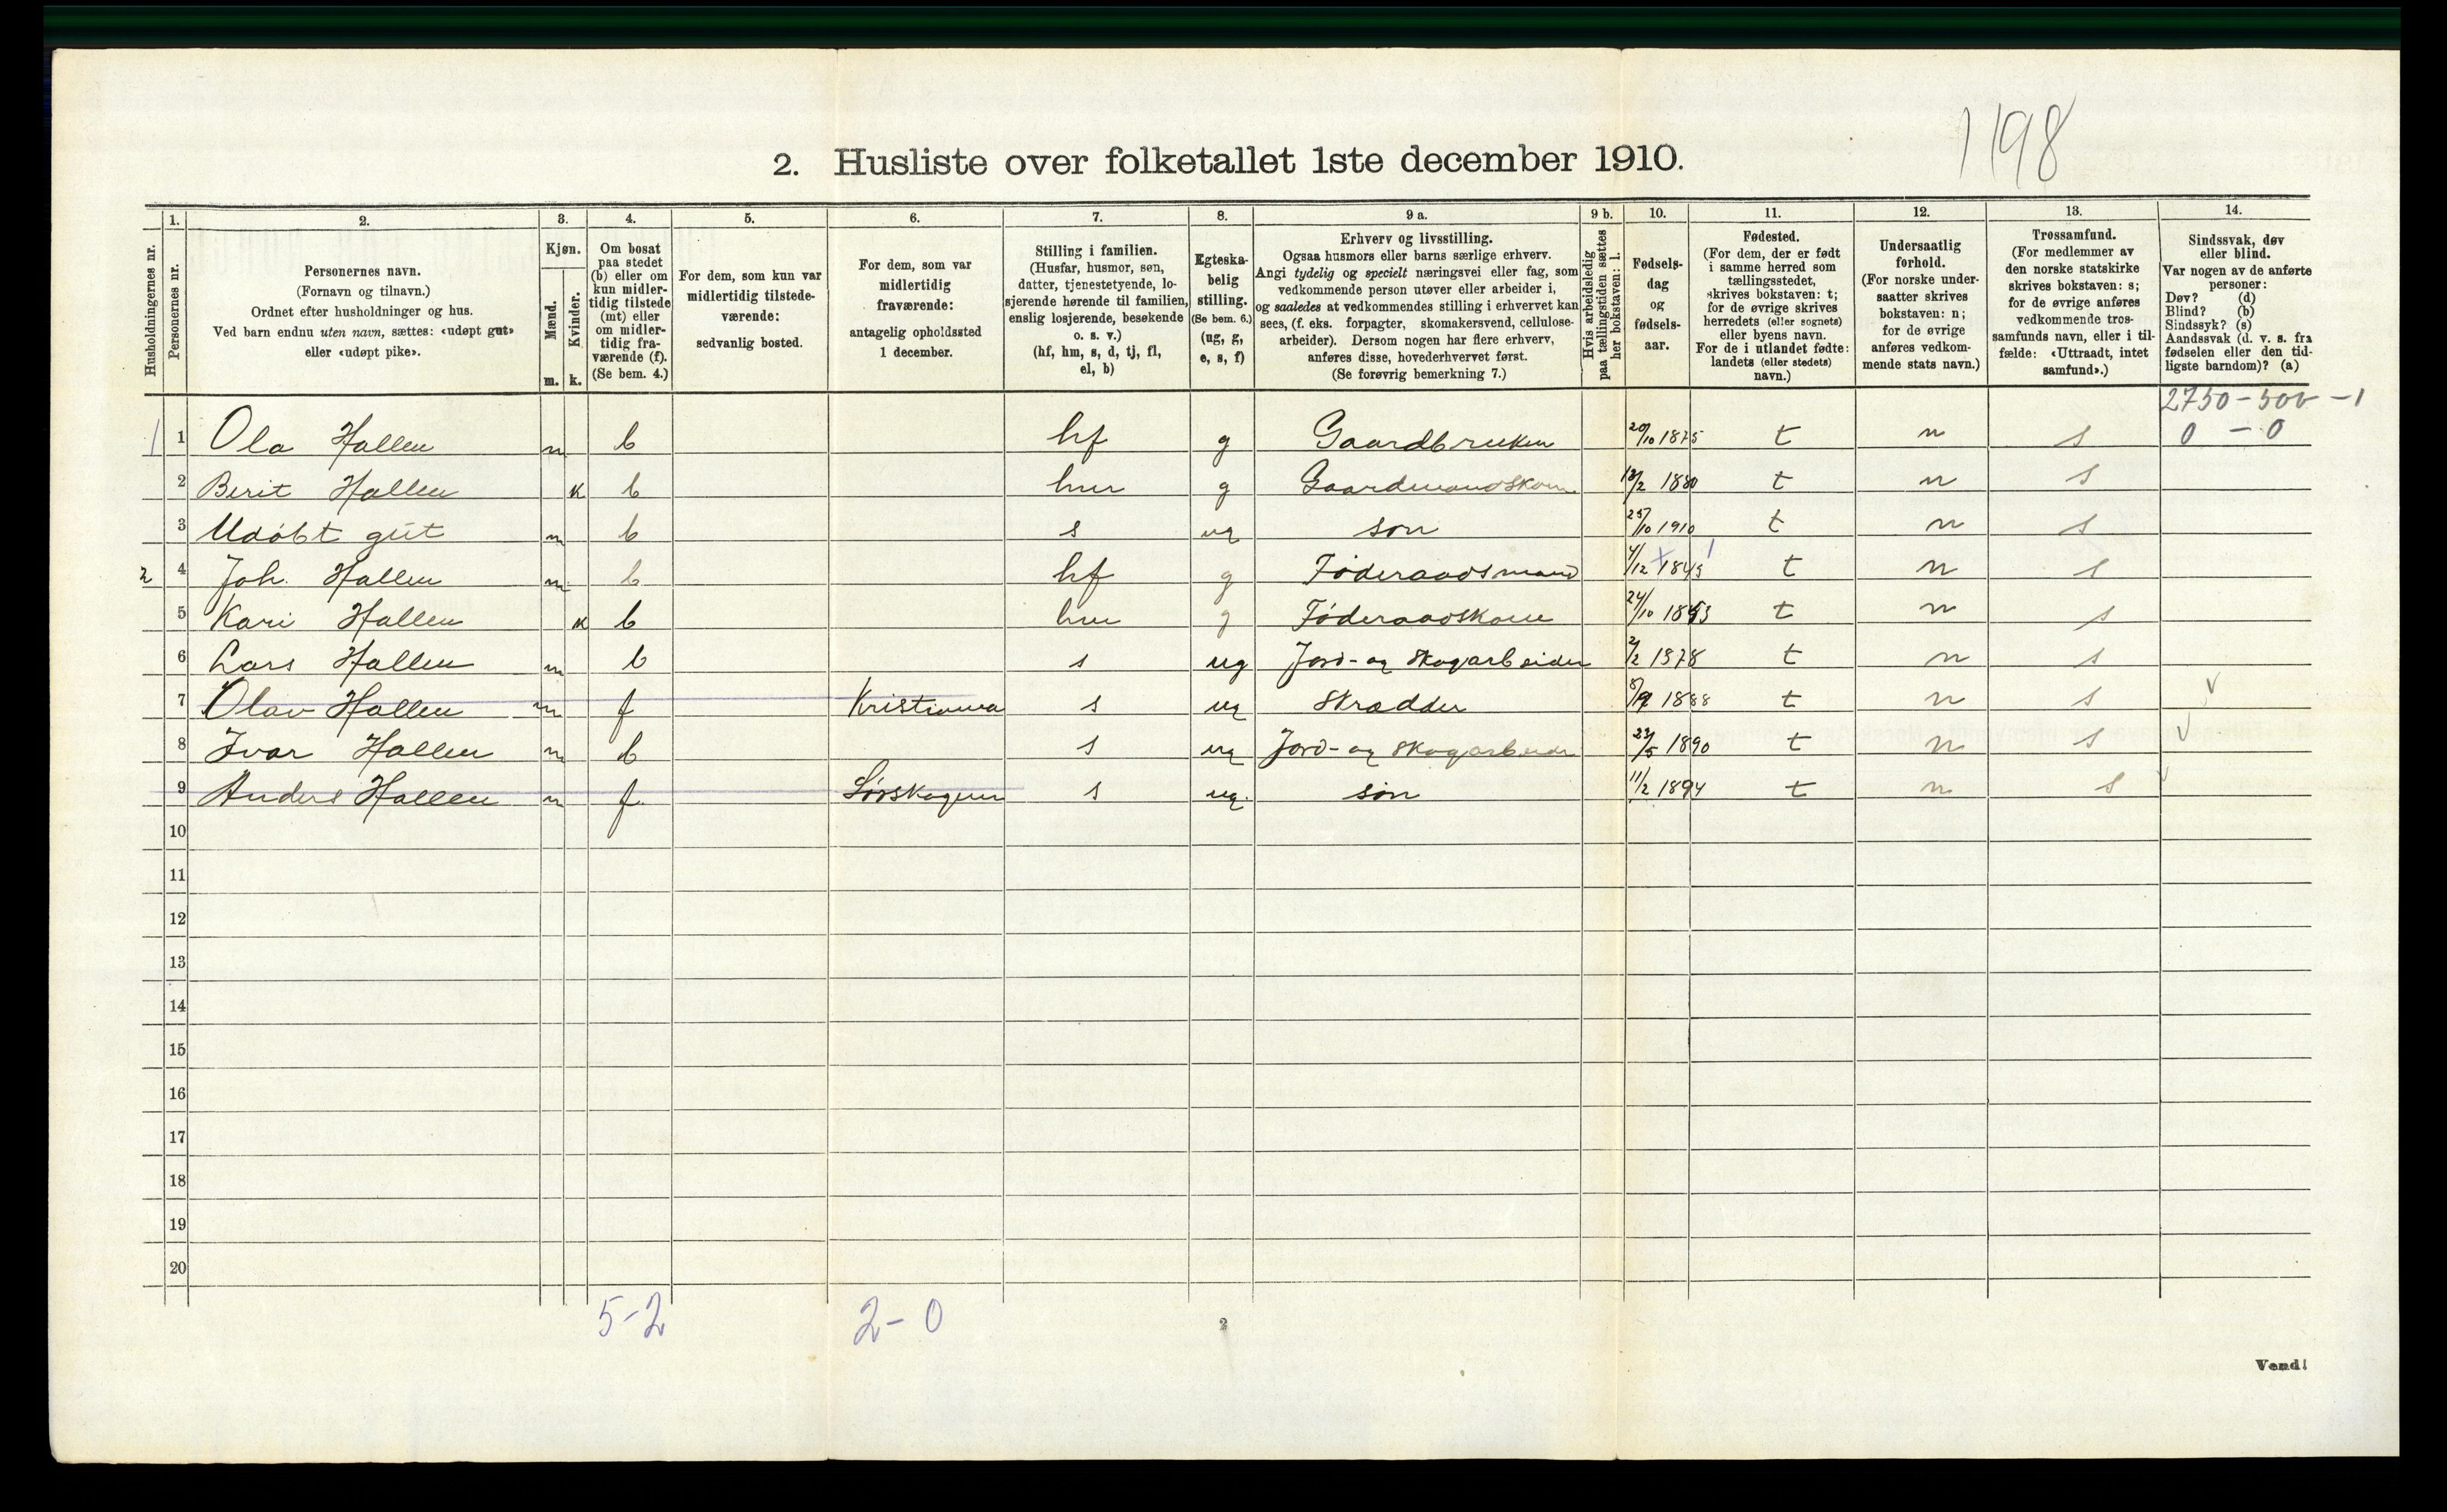 1198
2. Husliste over folketallet 1ste december 1910.
Husholdningernes nr.
1.
Personernes nr.
2.
Personernes navn.
(Fornavn og tilnavn.)
Ordnet efter husholdninger og hus.
Ved barn endnu uten navn, sættes: «udøpt gut»
eller «udøpt pike».
3.
Kjøn.
Mænd.
m.
Kvinder.
k.
4.
Om bosat
paa stedet
(b) eller om
kun midler-
tidig tilstede
(mt) eller
om midler-
tidig fra-
værende (f).
(Se bem. 4.)
5.
For dem, som kun var
midlertidig tilstede-
værende:
sedvanlig bosted.
6.
For dem, som var
midlertidig
fraværende:
antagelig opholdssted
1 december.
7.
Stilling i familien.
(Husfar, husmor, søn,
datter, tjenestetyende, lo-
sjerende hørende til familien,
enslig losjerende, besøkende
o. s. v.)
(hf, hm, s, d, tj, fl,
el, b)
8.
Egteska-
belig
stilling.
(Se bem. 6.)
(ug, g,
e, s, f)
9 a.
Erhverv og livsstilling.
Ogsaa husmors eller barns særlige erhverv.
Angi tydelig og specielt næringsvei eller fag, som
vedkommende person utøver eller arbeider i,
og saaledes at vedkommendes stilling i erhvervet kan
sees, (f. eks. forpagter, skomakersvend, cellulose-
arbeider). Dersom nogen har flere erhverv,
anføres disse, hovederhvervet først.
(Se forøvrig bemerkning 7.)
9 b.
Hvis arbeidsledig
paa tællingstiden sættes
her bokstaven: l.
10.
Fødsels-
dag
og
fødsels-
aar.
11.
Fødested.
(For dem, der er født
i samme herred som
tællingsstedet,
skrives bokstaven: t;
for de øvrige skrives
herredets (eller sognets)
eller byens navn.
For de i utlandet fødte:
landets (eller stedets)
navn.)
12.
Undersaatlig
forhold.
(For norske under-
saatter skrives
bokstaven: n;
for de øvrige
anføres vedkom-
mende stats navn.)
13.
Trossamfund.
(For medlemmer av
den norske statskirke
skrives bokstaven: s;
for de øvrige anføres
vedkommende tros-
samfunds navn, eller i til-
fælde: «Uttraadt, intet
samfund».)
14.
Sindssvak, døv
eller blind.
Var nogen av de anførte
personer:
Døv? (d)
Blind? (b)
Sindssyk? (s)
Aandssvak (d. v. s. fra
fødselen eller den tid-
ligste barndom)? (a)
2750 - 500 - 1
1 1 Ola Hallen m b hf g Gaardbruker 20/10 1875 t n s 0 - 0
2 Berit Hallen k b hm g Gaardmandskone 1880 t n s
3 Udøbt gut m b s ug søn 25/10 1910 t n s
2 4 Joh. Hallen m b hf g Føderaadsmand 4/12 t n s
5 Kari Hallen k b hm g Føderaadskone 24/10 t n s
6 Lars Hallen m b s ug Jord- og Skogarbeider 2/2 1878 t n s
7 Olav Hallen m f Kristiania s ug Skrædder 1888 t n s
8 Ivar Hallen m b s ug Jord- og Skogarbeider 23/5 1890 t n s
9 Anders Hallen m f Sørskogen s ug. søn 11/2 1894 t n s
10
11
12
13
14
15
16
17
18
19
20
5-2 2-0
2
Vend!